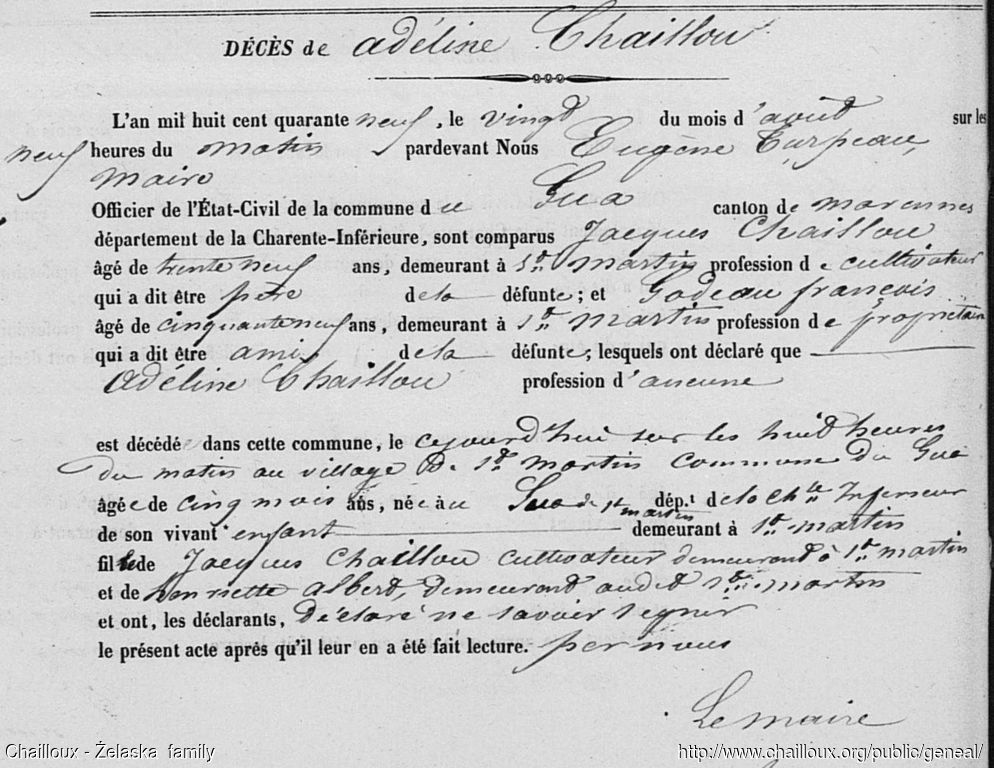 DÉCÈS de adéline Chaillou
L'an mil huit cent quarante neuf, le vingt du mois d'août sur les
neuf heures du matin pardevant Nous Eugène
Maire
Officier de l'État-Civil de la commune du Gua canton de marennes
département de la Charente-Inférieure, sont comparus Jacques Chaillou
âgé de trente neuf ans, demeurant à St. martin profession de cultivateur
qui a dit être père de la défunte; et Godeau françois
âgé de cinquante neuf ans, demeurant à St. martin profession de propriétaire
qui a dit être ami de la défunte, lesquels ont déclaré que
adéline Chaillou profession d'aucune
est décédé dans cette commune, le cejourd'hui sur les huit heures
du matin au village de St. martin commune du Gua
âgée de cinq mois ans, née au Gua de St martin dép.t de la Chte Inferieur
de son vivant enfant demeurant à St. martin
fille de Jacques Chaillou cultivateur demeurant à St. martin
et de henriette albert, demeurant audit St. martin
et ont, les déclarants, déclaré ne savoir signer
le présent acte après qu'il leur en a été fait lecture. par nous
Le maire
Chailloux - Želaska family
http://www.chailloux.org/public/geneal/